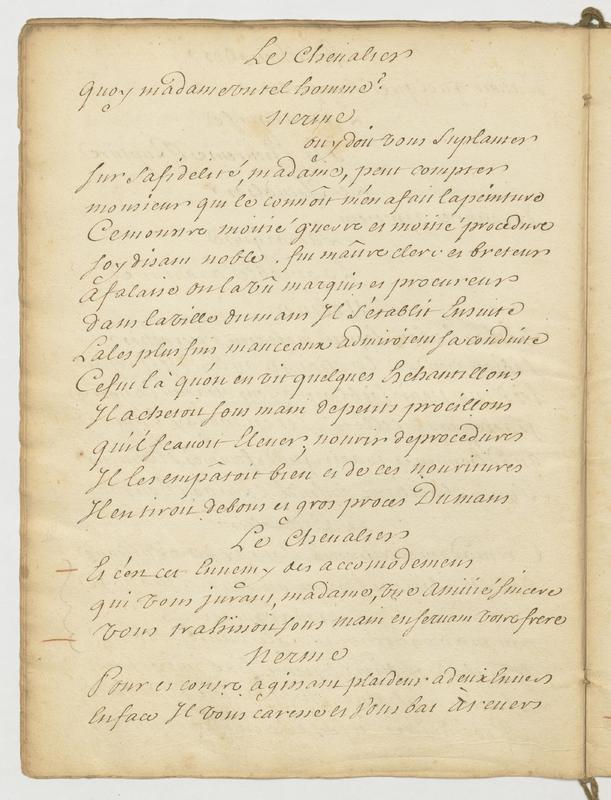 Le Chevalier
quoy madame un tel homme?
Nerine
ouy doit vous suplanter
sur sa fidelité, madame, peut compter
monsieur qui le connoît m'en a fait la peinture
Ce monstre moitié guerre et moitié procedure
soy disant noble. fut maître clerc et breteur
à falaise on l'a vû marquis et procureur
dans la ville du mans Il s'établit Ensuite
La les plus fins manceaux admiroient sa conduite
Ce fut là qu'on en vit quelques Echantillons
Il achetoit sous main de petits procillons
qu'il scavoit Elever, nourir de procedures
Il les empâtoit bien et de ces nouritures
Il en tiroit de bons et gros procés Du mans
Le Chevalier
Et c'est cet Ennemy des accomodemens
qui vous jurant, madame, une amitié sincere
vous trahissoit sous main en servant votre frere
Nerine
Pour et contre agissant plaideur a deux Envers
En face Il vous caresse et vous bat à revers